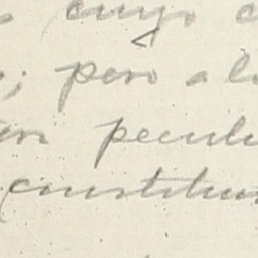 cuyo
; pero al
pecul
constitu